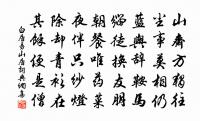 山齋方獨往
塵事莫相仍
藍輿辭鞍馬
緇徒換友朋
朝餐唯藥菜
夜伴只紗燈
除却青衫在
其餘便是僧
白居易山居詞典網集